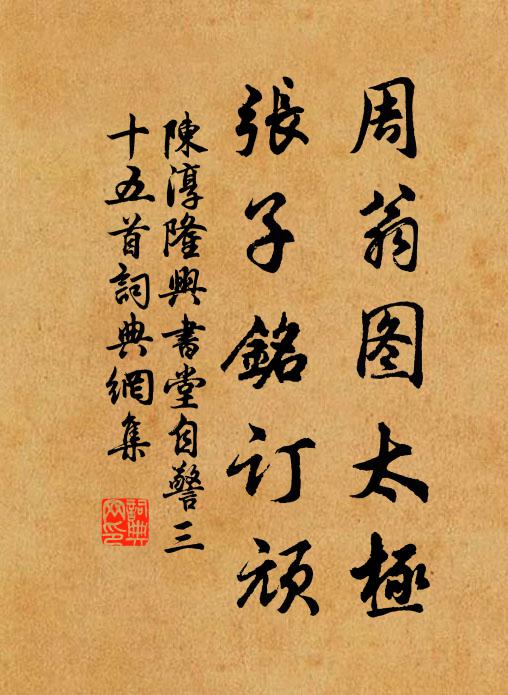 周翁图太極
張子銘订顽
陳淳隆興書堂自警三
十五首詞典網集
詞典
网印